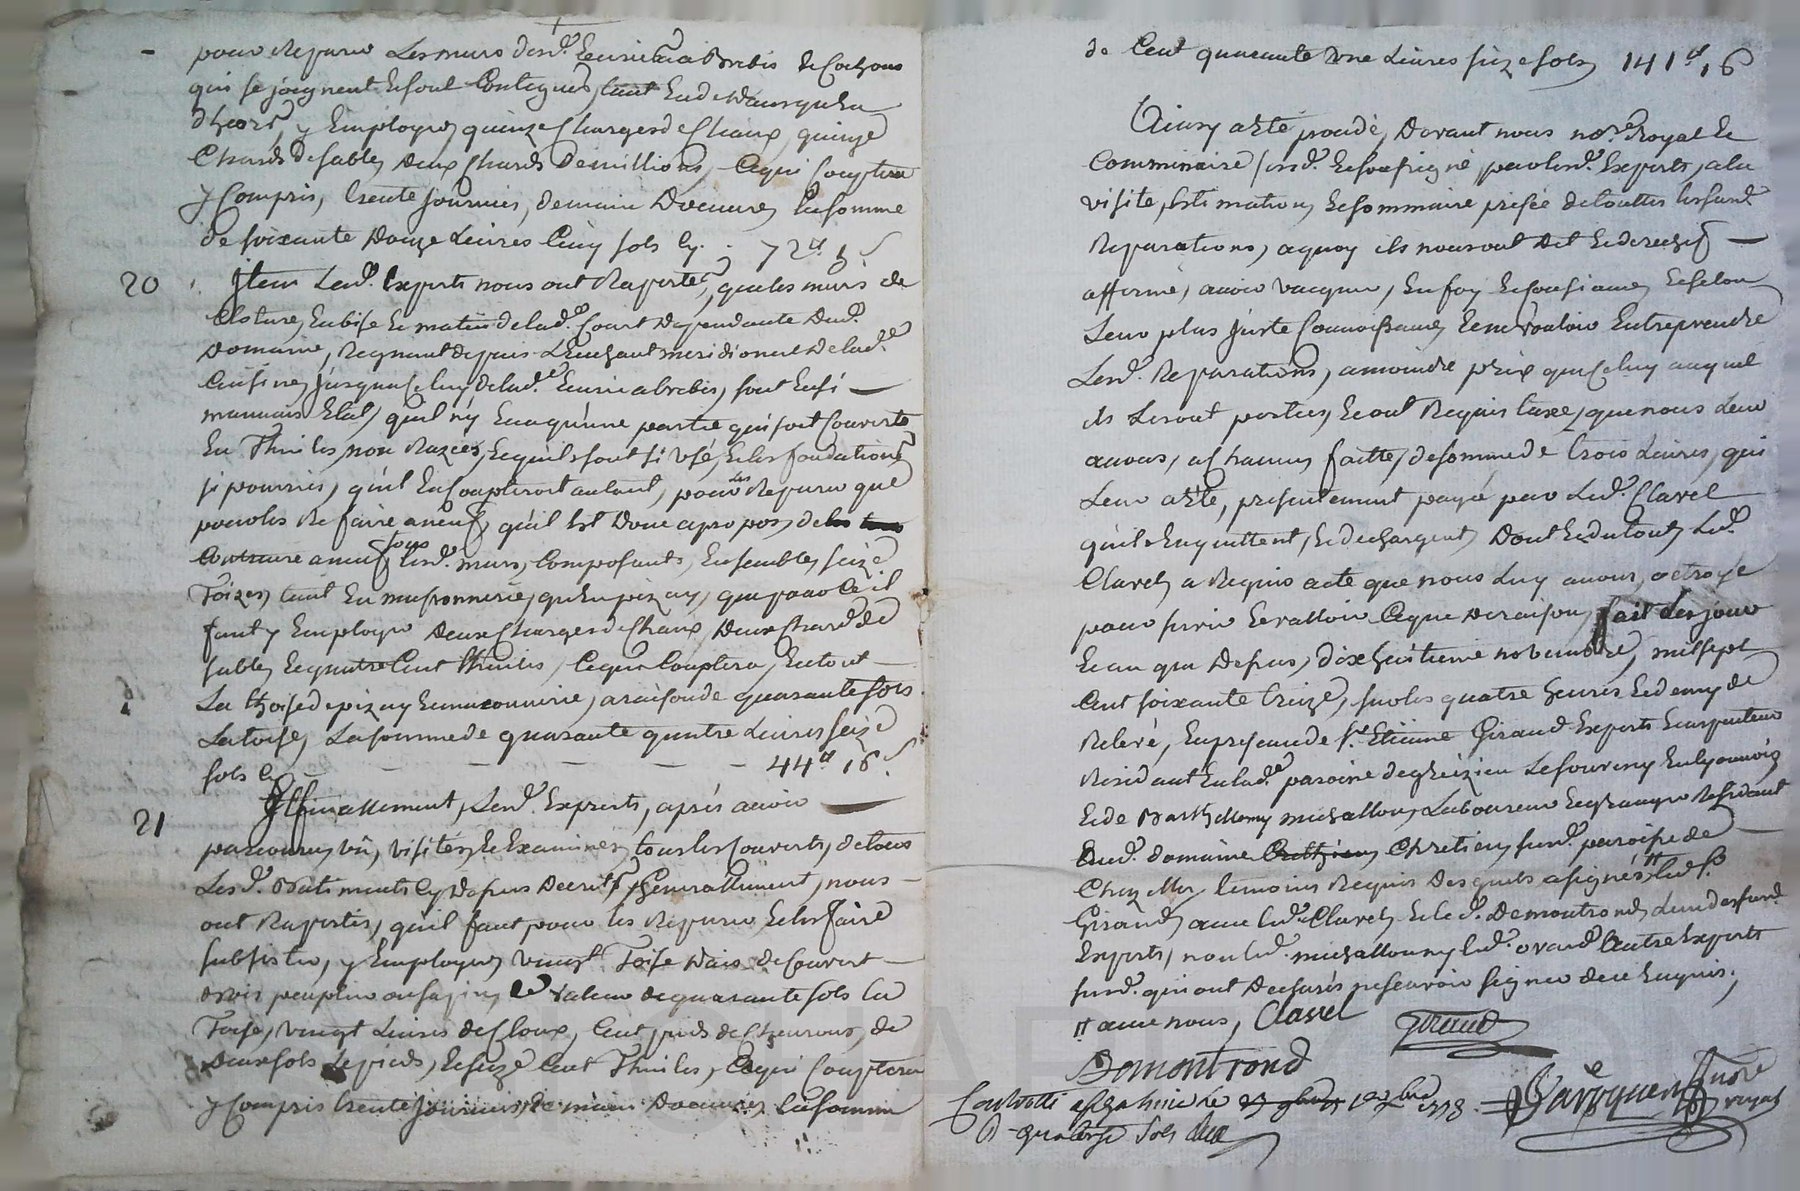 pour Reparer Les murs desd. Ecurie a Brebis & Cochons
qui se joignent & sont Contigues, tant En dedans qu'En
dhors, y Employer quinze Charges de Chaux, quinze
Chards de sable, deux Chards de millions, Ce qui Couptera
y Compris, trente journées, de main Doeuvres La somme
de soixante Douze Livres Cinq sols Cy. 72ll 5s
20 Item Lesd. Experts nous ont Raporté, que les murs de
Cloture, En bise & matin de lad. Court Dependante Dud.
Domaine, Regnant depuis L'Enchant meridional De lad.
Cuisine, jusqua Celuy de lad. Ecurie a brebis, sont En si
mauvais Etat, quil n'y En a qu'une partie qui soit Couverte
En Thuiles, non Razées, & quils sont si usé, & les fondations
si pourries, quil En Coupteroit autant, pour Les Reparer que
pour les Refaire a neuf, quil Est Donc apropos, de
Construire a neuf tous lesd. murs, Composants, Ensembles, seize
Toizes, tant En massonnerie, qu'En pizay, que pour Ce il
faut y Employer Deux Charges de Chaux, Deux Chard de
sable, & quatre Cent Thuiles, Ce qui Couptera, En tout
La thoise de pizay & maconnerie, a raison de quarante sols
La toise, La somme de quarante quatre Livres seize
sols Cy 44ll 16s
21 Et finallement, Lesd. Experts, après avoir
parcourus, vû, visités, & Examinés, tous les Couverts, de tous
Lesd. Batiments Cy Depus Decrits, Generallement, nous
ont Raportés, quil faut pour les Reparer & les faire
subsister, y Employer, vingt Toise Dais de Couvert
Bois peuplier ou sapin, de valeur de quarante sols la
Toise, vingt Livres de Cloux, Cent pieds de Chevrons, de
Deux sols Le pieds, & seize Cent Thuiles, Ce qui Couptera
y Compris trente journées, de main Doeuvres La somme
de Cent quarante une Livres seize sols 141ll 16
Ainsy a Eté procedé, Devant nous nore Royal &
Commissaire susd. & soussigné, par lesd. Experts, a la
visite, Estimation, & sommaire prisée de touttes les susd.
Reparations, a quoy ils nous ont Dit & derechef
affirmé, avoir vacquer, En foy & Consiance & selon
Leur plus juste Connoissance, & ne vouloir Entreprendre
Lesd. Reparations, a moindre prix que Celuy auquel
ils Les ont portées, & ont Requis taxe, que nous Leur
avons, a chacun faitte, de somme de trois Livres, qui
Leur a Eté, presentement payé par Led. Clavel
qu'ils En quittent, & dechargent, Dont & du tout, Led.
Clavel, a Requis acte que nous Luy avons octroyé
pour servir & valloir Ce que De raison, fait Les jour
& an que Depus, dix huitieme novembre, mil sept
Cent soixante treize, sur les quatre heures & demy de
Relevé, En presence de sr. Etienne Giraud Expert & carpenteur
Residant En lad. paroisse de Grezieu Le souveny En Lyonnois
& de Barthellemy michallon, Laboureur & granger Residant
Aud. domaine Chretien, susd. paroisse de
Chazelle, temoins Requis Desquels a signés led. sr.
Giraud, avec led. Clavel, & le d. Demontrond, L'un des susd.
Experts, non led. michallon ny led. L'autre Experts
susd. qui ont Declarés ne scavoir signer de ce Enquis,
avec nous, Clavel Giraud
Demontrond
Controllé 1778
quatorze sols
nore
royal